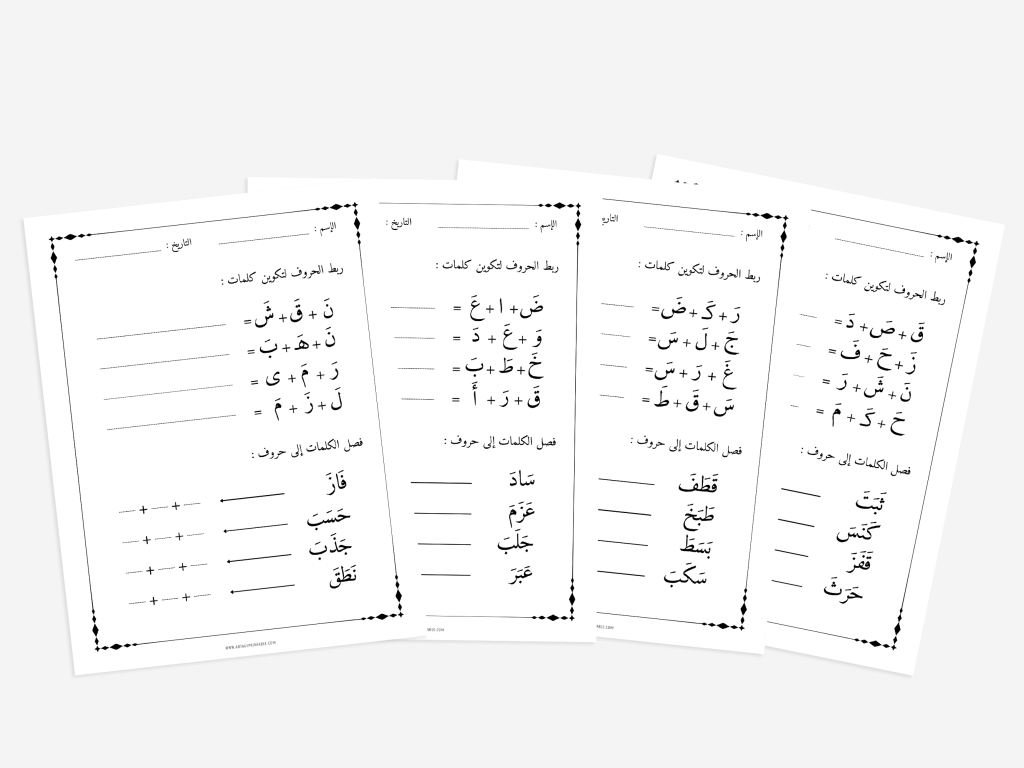 الإسم : التاريخ :
ربط الحروف لتكوين كلمات :
نَ + قَ + شَ =
نَ + هَـ + بَ =
رَ + مَ + ى =
لَ + زَ + مَ =
فصل الكلمات إلى حروف :
فَازَ + +
حَسَبَ + +
جَذَبَ + +
نَطَقَ + +
الإسم : التاريخ :
ربط الحروف لتكوين كلمات :
ضَ + ا + عَ =
وَ + عَ + دَ =
خَ + طَ + بَ =
قَ + رَ + أَ =
فصل الكلمات إلى حروف :
سَادَ
عَزَمَ
جَلَبَ
عَبَرَ
الإسم :
ربط الحروف لتكوين كلمات :
رَ + كَـ + ضَ =
جَ + لَ + سَ =
غَ + رَ + سَ =
سَ + قَ + طَ =
فصل الكلمات إلى حروف :
قَطَفَ
طَبَخَ
بَسَطَ
سَكَبَ
الإسم :
ربط الحروف لتكوين كلمات :
قَ + صَ + دَ =
زَ + حَ + فَ =
نَ + شَ + رَ =
حَ + كَـ + مَ =
فصل الكلمات إلى حروف :
ثَبَتَ
كَنَسَ
قَفَزَ
حَرَثَ